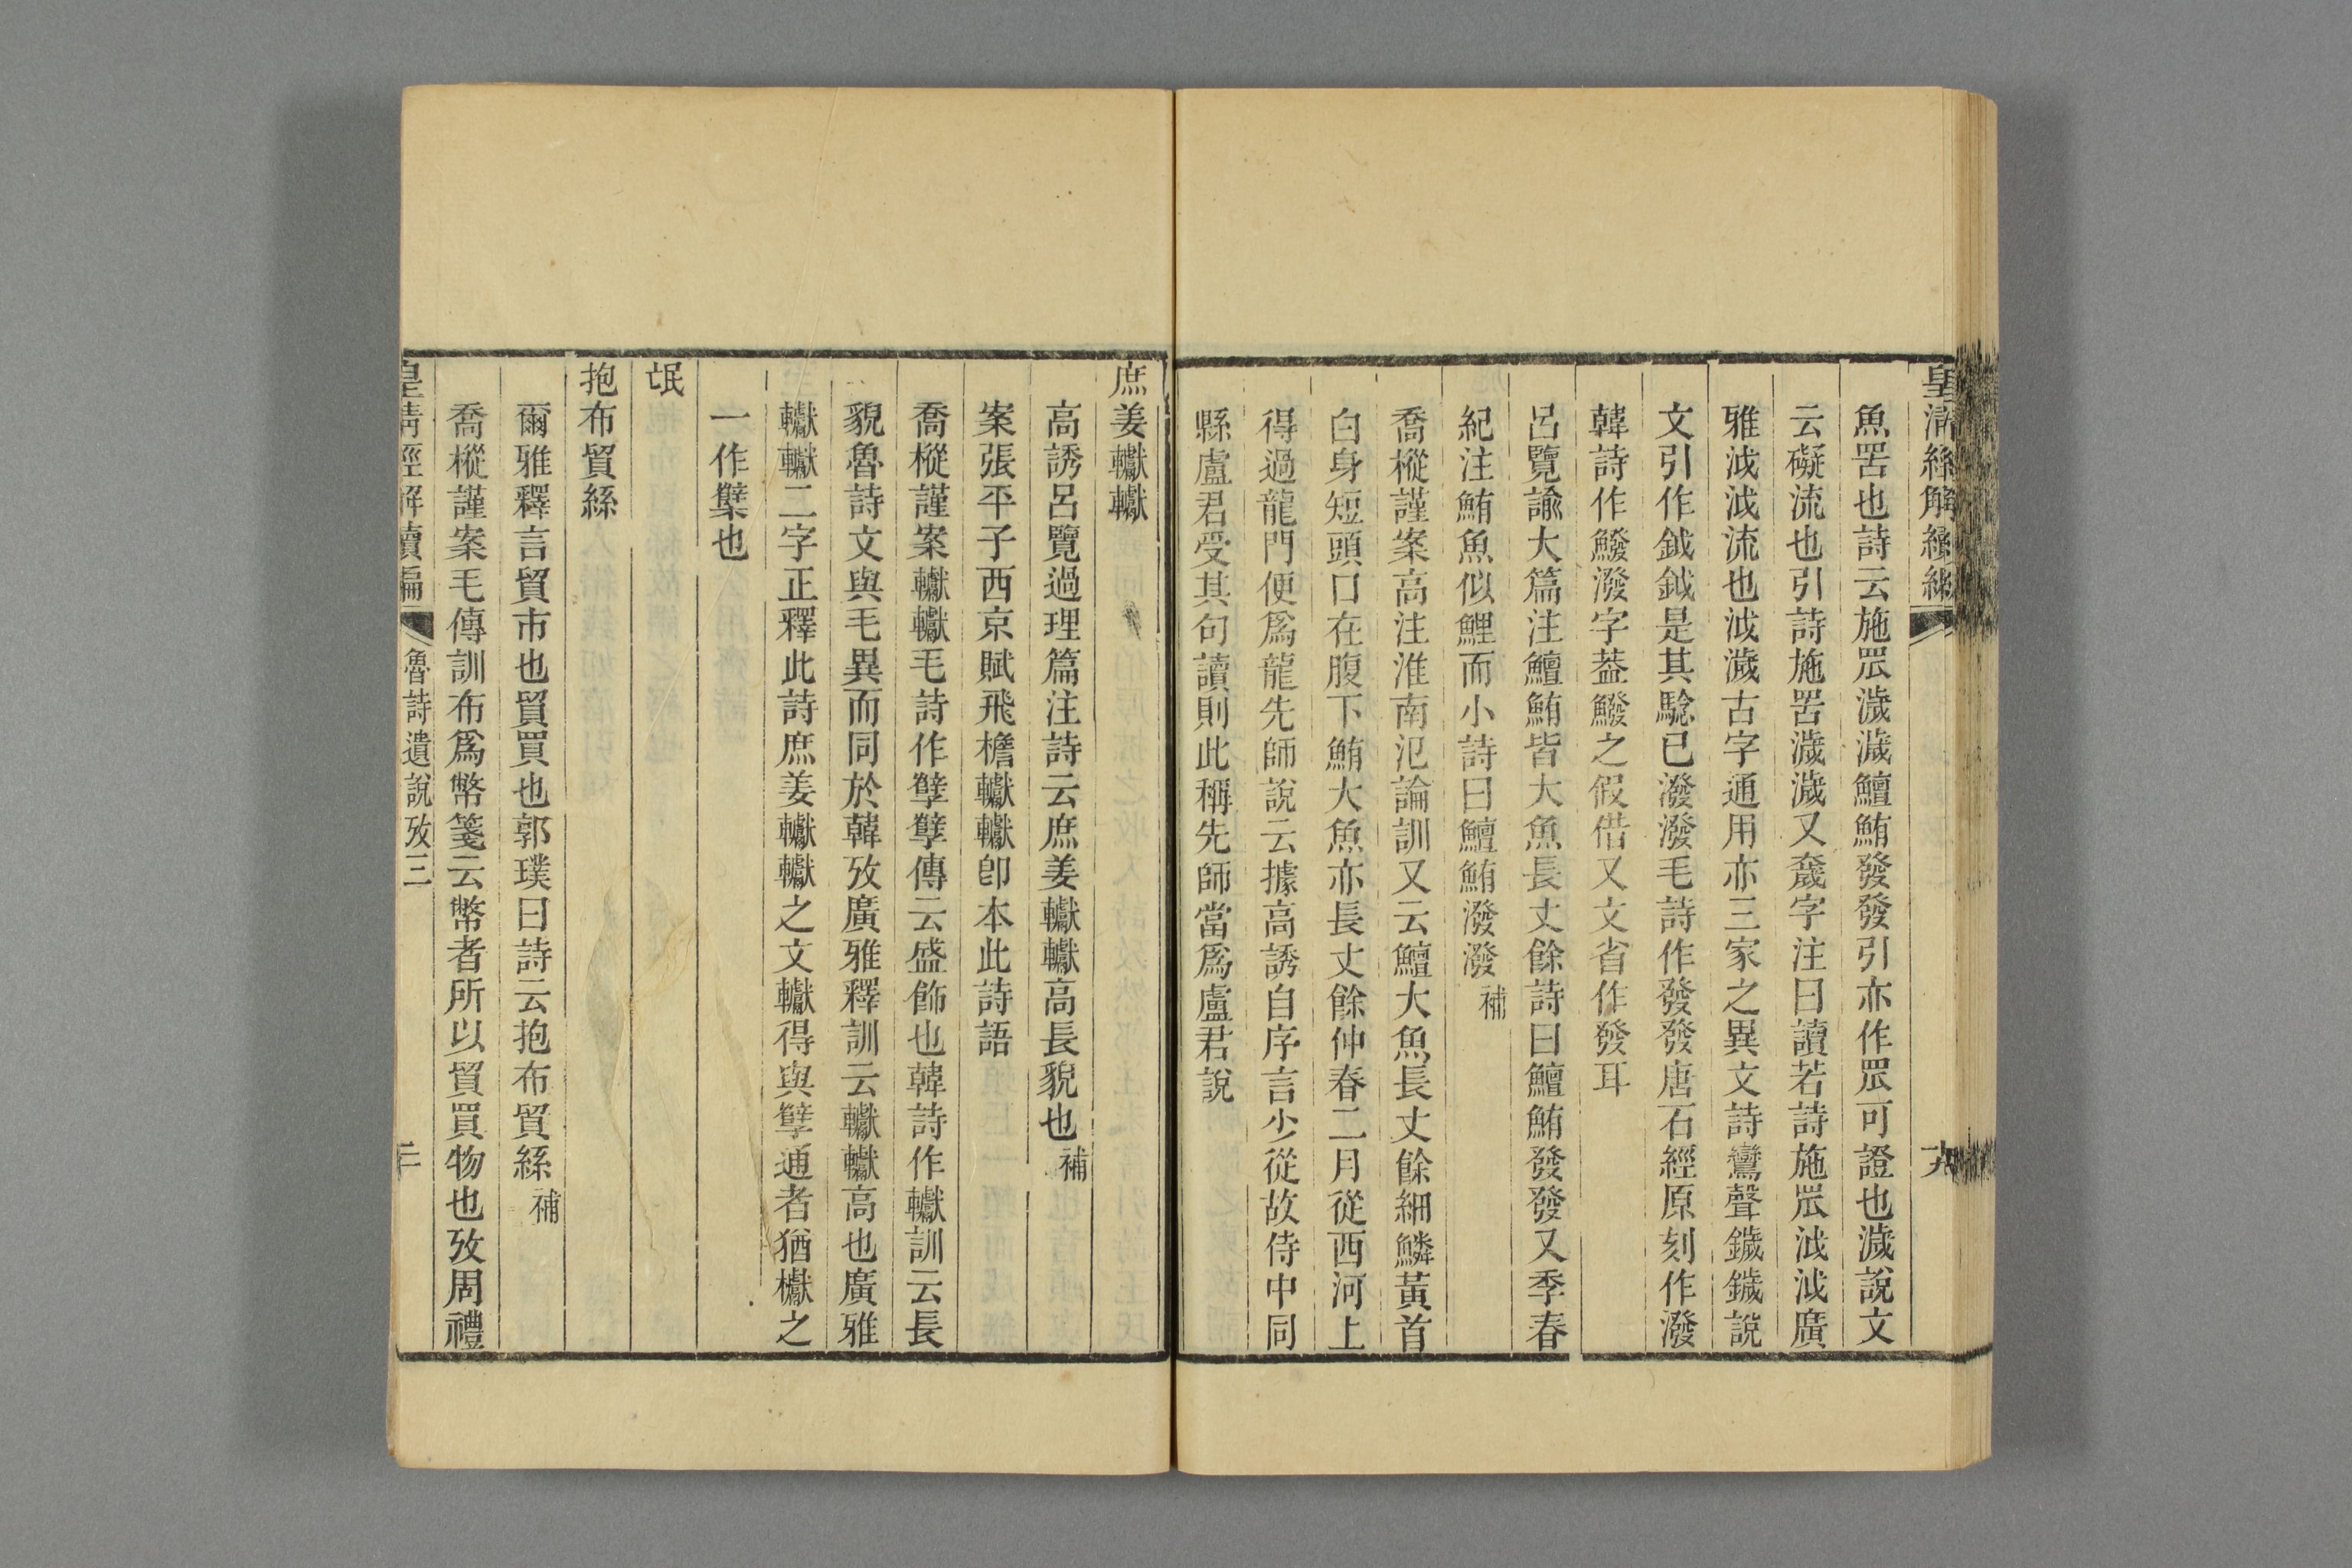 魚罟也詩云施罛濊濊鱣鮪發發引亦作罛可證也濊說文
云礙流也引詩施罟濊濊又奯字注曰讀若詩施罛泧泧廣
雅泧泧流也泧濊古字通用亦三家之異文詩鸞聲鐬鐬說
文引作鉞鉞是其騐已潑潑毛詩作發發唐石經原刻作潑
韓詩作鱍潑字葢鱍之假借又文省作發耳
呂覽諭大篇注鱣鮪皆大魚長丈餘詩曰鱣鮪發發又季春
紀注鮪魚似鯉而小詩曰鱣鮪潑潑補
喬樅謹案高注淮南氾論訓又云鱣大魚長丈餘細鱗黃首
白身短頭口在腹下鮪大魚亦長丈餘仲春二月從西河上
得過龍門便爲龍先師說云據高誘自序言少從故侍中同
縣盧君受其句讀則此稱先師當爲盧君說
庶姜轥轥
高誘呂覽過理篇注詩云庶姜轥轥高長貌也補
案張平子西京賦飛檐轥轥卽本此詩語
喬樅謹案轥轥毛詩作孼孼傳云盛飾也韓詩作轥訓云長
貌魯詩文與毛異而同於韓攷廣雅釋訓云轥轥高也廣雅
轥轥二字正釋此詩庶姜轥轥之文轥得與孼通者猶櫱之
一作㰇也
氓
抱布貿絲
爾雅釋言貿市也貿買也郭璞曰詩云抱布貿絲補
喬樅謹案毛傳訓布爲幣箋云幣者所以貿買物也攷周禮
皇清經解續編
魯詩遺說攷三